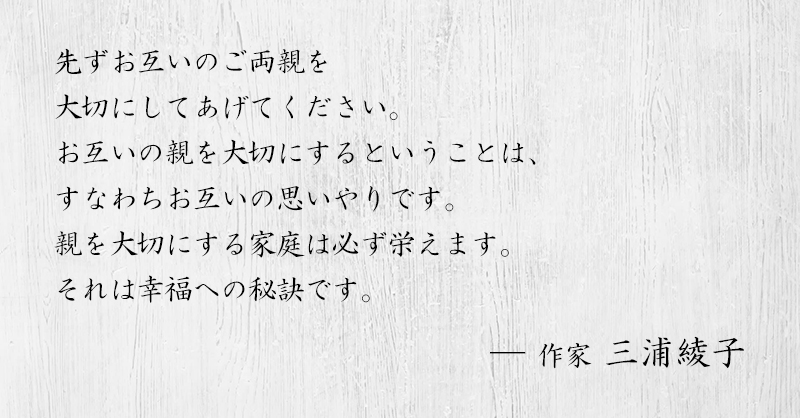 先ずお互いのご両親を
大切にしてあげてください。
お互いの親を大切にするということは、
すなわちお互いの思いやりです。
親を大切にする家庭は必ず栄えます。
それは幸福への秘訣です。
― 作家 三浦綾子